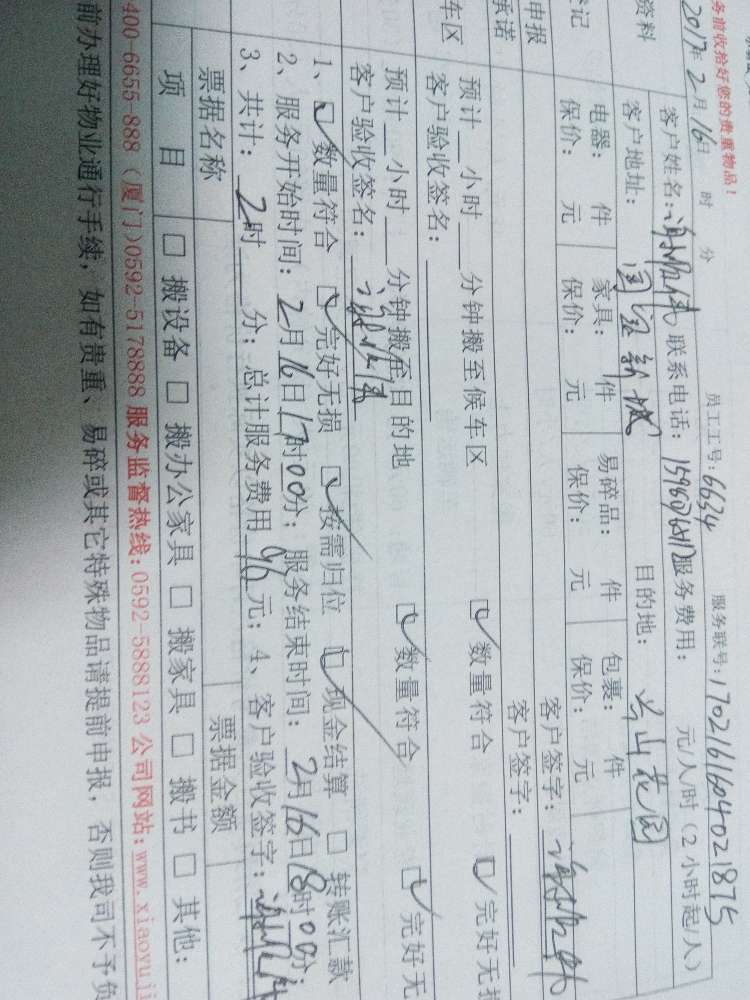 务前收拾好您的贵重物品！
员工工号：6634 服务联号：1702161604021875
2017年2月16日 时 分
资料 客户姓名： 联系电话： 服务费用： 元/人/时（2小时起/人）
客户地址：国宝新城 目的地： 花园
登记 电器： 件 家具： 件 易碎品： 件 包裹： 件
保价： 元 保价： 元 保价： 元 保价： 元
申报 客户签字：
承诺 客户签字：
车区 预计 小时 分钟搬至候车区 数量符合 完好无损
客户验收签名：
预计 小时 分钟搬至目的地 数量符合 完好无
客户验收签名：
1、 数量符合 完好无损 按需归位 现金结算 □ 转账汇款
2、服务开始时间：2月16日17时00分；服务结束时间：2月16日18时00分；
3、共计：2时 分；总计服务费用 元；4、客户验收签字：
票据名称 票据金额
项 目 □ 搬设备 □ 搬办公家具 □ 搬家具 □ 搬书 □ 其他：
400-6655-888（厦门）0592-5178888 服务监督热线：0592-5888123 公司网站：www.xiaoyuji
前办理好物业通行手续，如有贵重、易碎或其它特殊物品请提前申报，否则我司不予负